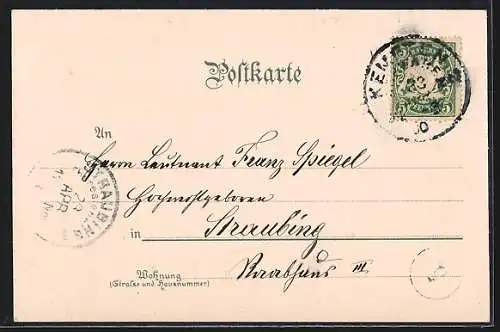 Postkarte
KEMPTEN
BAYERN
5 5
An
Herrn Leutnant Franz Spiegel
Hochwohlgeboren
in Straubing
Wohnung
(Straße und Hausnummer)
III
STRAUBING
23
APR